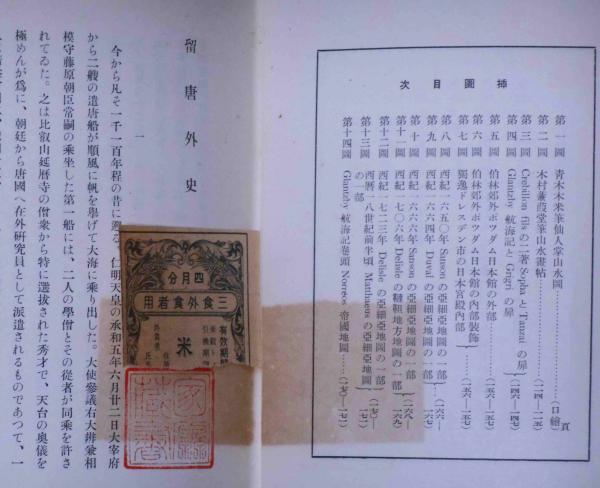 挿圖目次
頁
第一圖 青木木米筆仙人掌山水圖 (口繪)
第二圖 木村蒹葭堂筆山水畫帖 (一二四—一二五)
第三圖 Crebillon fils の二著 Sopha と Tanzai の扉
第四圖 Glantzby 航海記と Grigri の扉 (一四六—一四七)
第五圖 伯林郊外ポツダム日本館の外部
第六圖 伯林郊外ポツダム日本館の内部裝飾
第七圖 獨逸ドレスデン市の日本宮殿内部 (一五六—一五七)
第八圖 西紀一六五〇年 Sanson の亞細亞地圖の一部
第九圖 西紀一六六四年 Duval の亞細亞地圖の一部 (一六六—
第十圖 西紀一六六六年 Sanson の亞細亞地圖の一部
第十一圖 西紀一七〇六年 Delisle の韃靼地方地圖の一部 (一六八—一六九)
第十二圖 西紀一七二三年 Delisle の亞細亞地圖の一部
第十三圖 西曆一八世紀前半頃 Matthaeus の亞細亞地圖の一部 (一七〇—一七一)
第十四圖 Glantzby 航海記卷頭 Noreos 帝國地圖 (一七〇—一七一)
留唐外史
一
今から凡そ一千一百年程の昔に遡る。仁明天皇の承和五年六月廿二日大宰府
から二艘の遣唐船が順風に帆を擧げて大海に乘り出した。大使參議右大辨兼相
模守藤原朝臣常嗣の乘坐した第一船には、二人の學僧とその從者が同乘を許さ
れてゐた。之は比叡山延曆寺の僧衆から特に選拔された秀才で、天台の奥儀を
極めんが爲に、朝廷から唐國へ在外研究員として派遣されるものであつて、一
四月分
三食外食者用
米
有效期間
家藏書